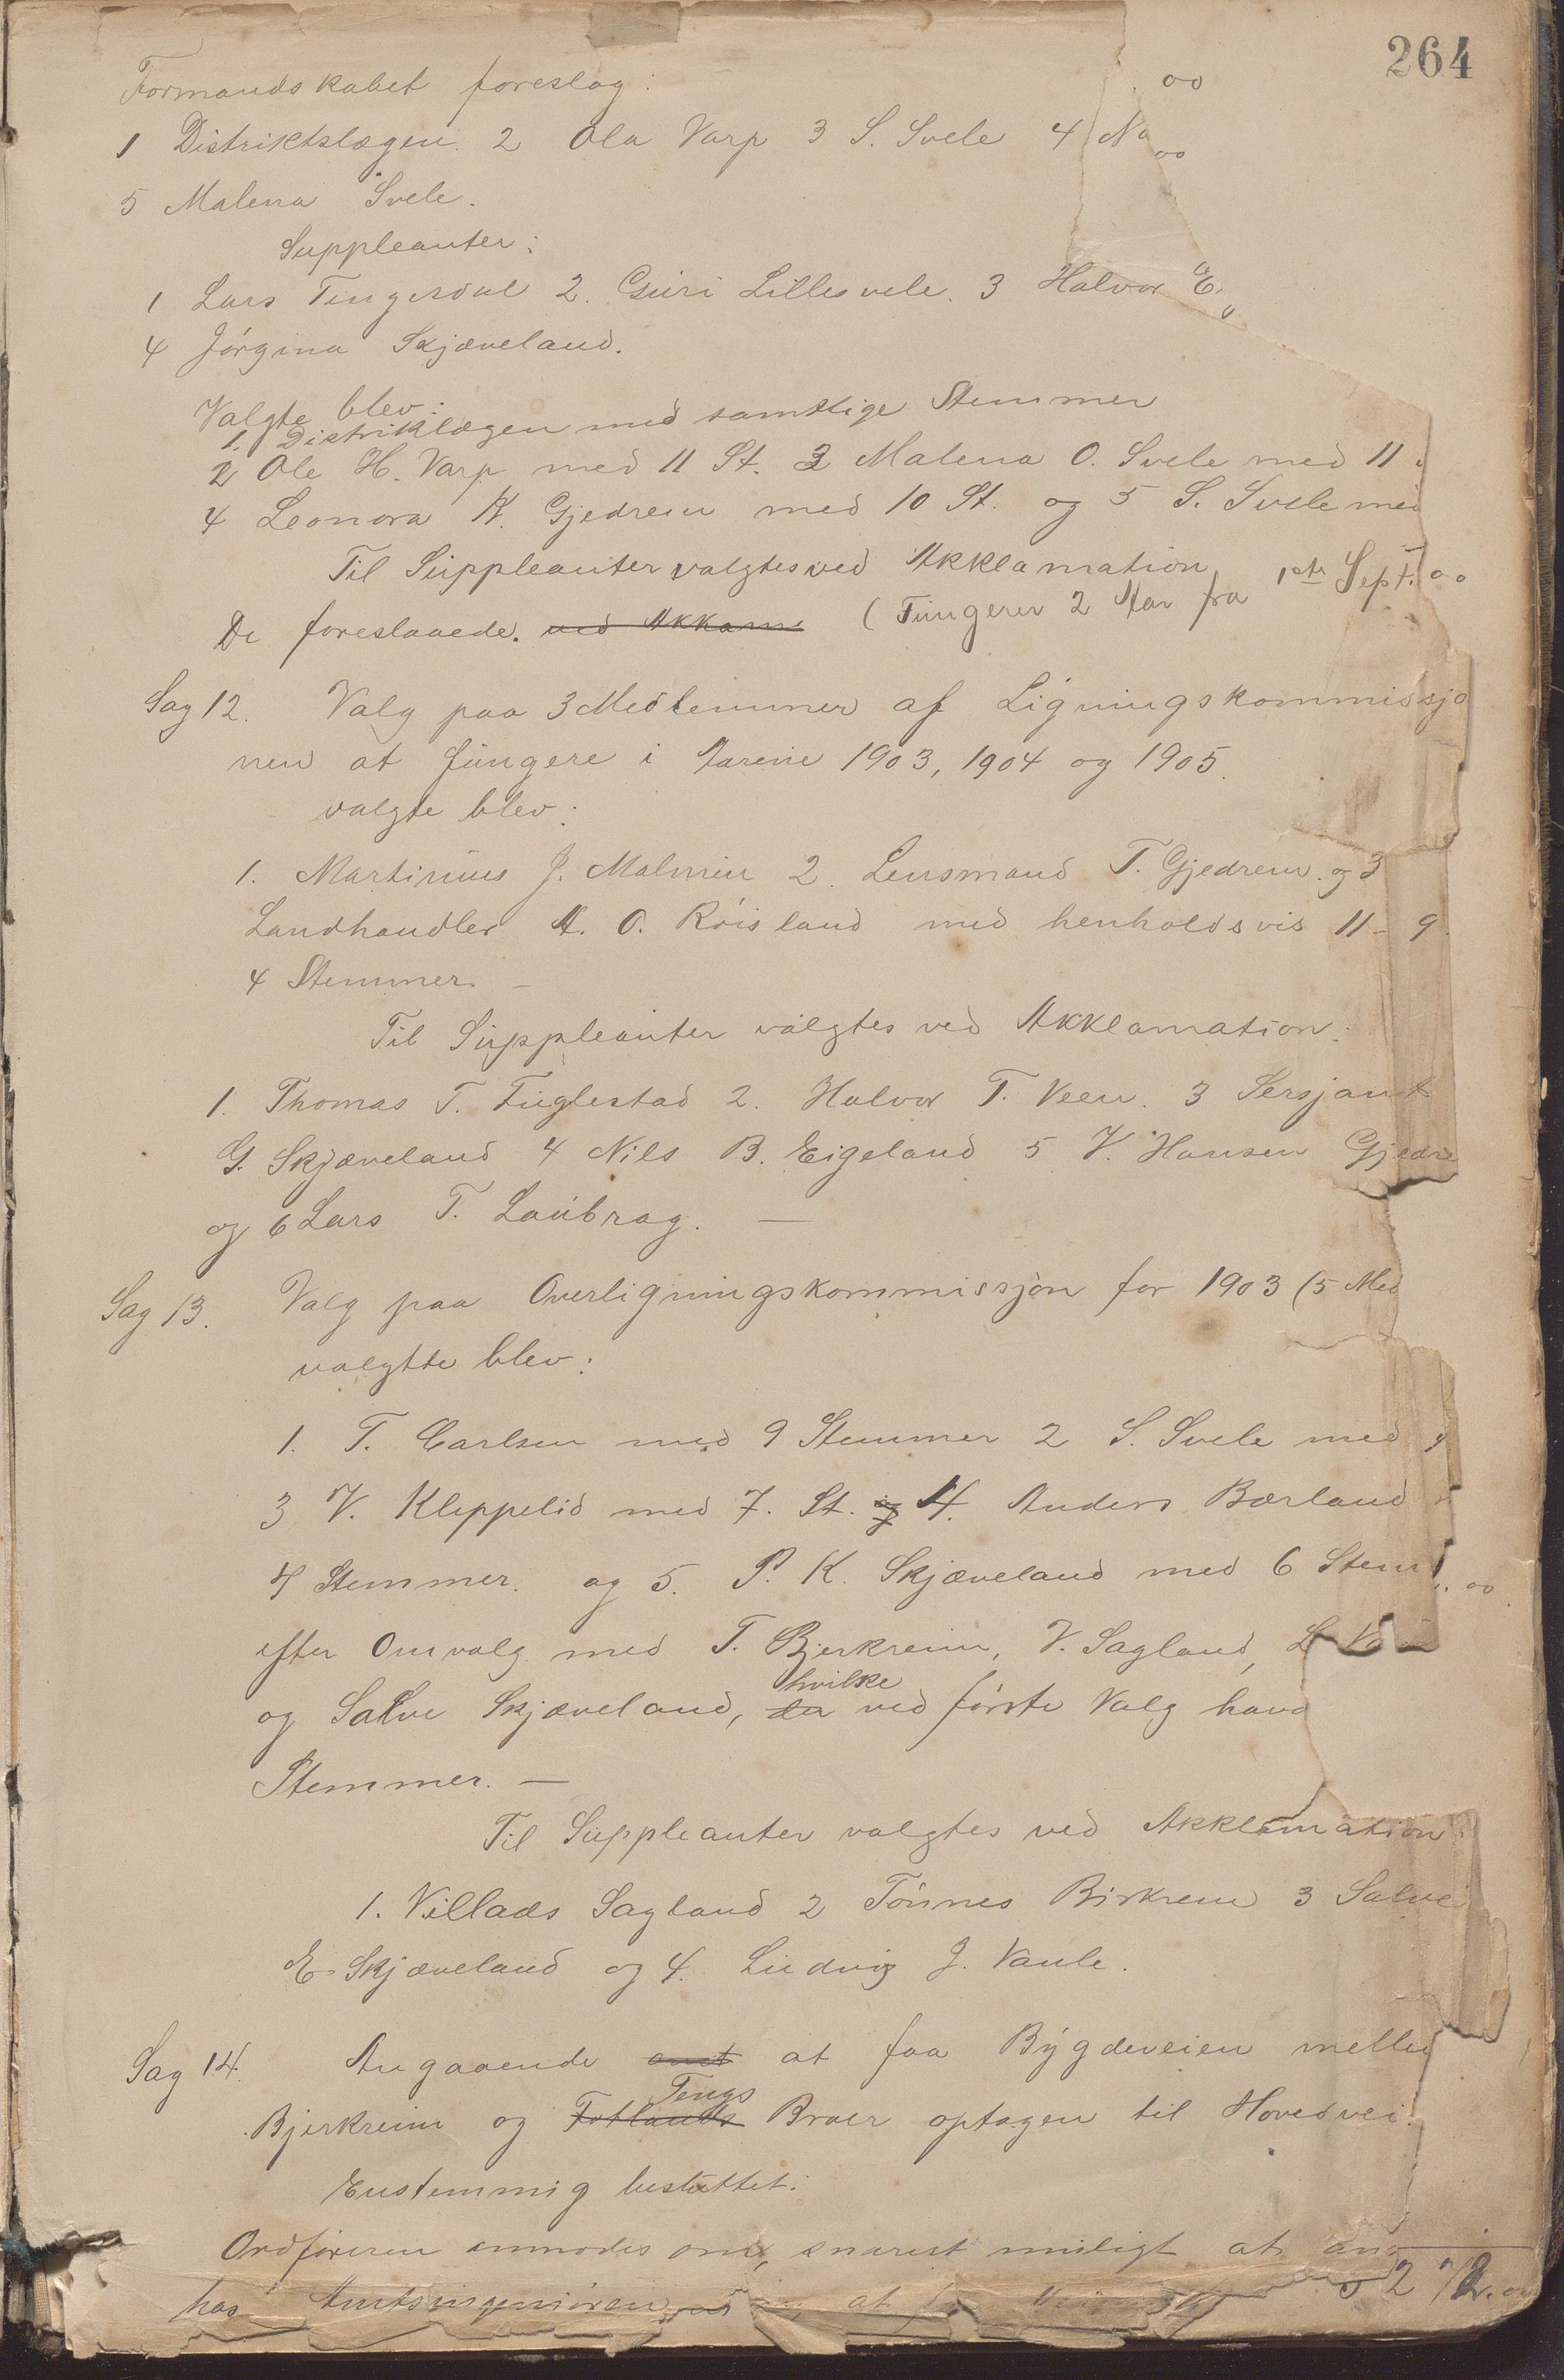 264
Formandskabet foreslog:
1 Distriktslægen. 2 Ola Varp 3 S. Svele 4
5 Malena Svele.
Suppleanter:
1 Lars Tengesdal 2. Guri Lillesvele. 3 Halvor
4 Jørgina Skjæveland.
Valgte blev:
1. Distriklægen med samtlige Stemmer
2 Ole H. Varp med 11 St. 3 Malena O. Svele med 11
4 Leonora K. Gjedrem med 10 St. og 5 S. Svele med
Til Suppleanter valgtes ved Akklamation
De foreslaaede. ved Akkam (Fungerer 2 Aar fra 1ste Sept.
Sag 12. Valg paa 3 Medlemmer af Ligningskommissjo
nen at fungere i Aarene 1903, 1904 og 1905.
valgte blev:
1. Martinius J. Malmin 2. Lensmand T. Gjedrem og 3
Landhandler A. O. Røisland med henholdsvis 11 - 9
4 Stemmer. -
Til Suppleanter valgtes ved Akklamation:
1. Thomas T. Fuglestad 2. Halvor T. Veen. 3 Sersjant
G. Skjæveland 4 Nils B. Eigeland 5 V. Hansen Gjedre
og 6 Lars T. Laubrag. —
Sag 13. Valg paa Overligningskommissjon for 1903 (5 Med
valgtte blev:
1. T. Carlsen med 9 Stemmer 2 S. Svele med 9
3 V. Kleppelid med 7. St. og 4. Anders Bærland
4 Stemmer. og 5. P. K. Skjæveland med 6 Stem
efter Omvalg med T. Bjerkreim, V. Sagland,
og Salve Skjæveland, da hvilke ved første Valg havd
Stemmer. —
Til Suppleanter valgtes ved Akklamation:
1. Villads Sagland 2 Tønnes Birkrem 3 Salve
E. Skjæveland og 4. Ludvig J. Vaule.
Sag 14. Angaaende at faa Bygdeveien melle
Bjerkreim og Fotlands Tengs Broer optagen til Hovedvei.
Enstemmig besluttet:
Ordføreren anmodes om, snarest muligt at
hos Amtsingeniøren